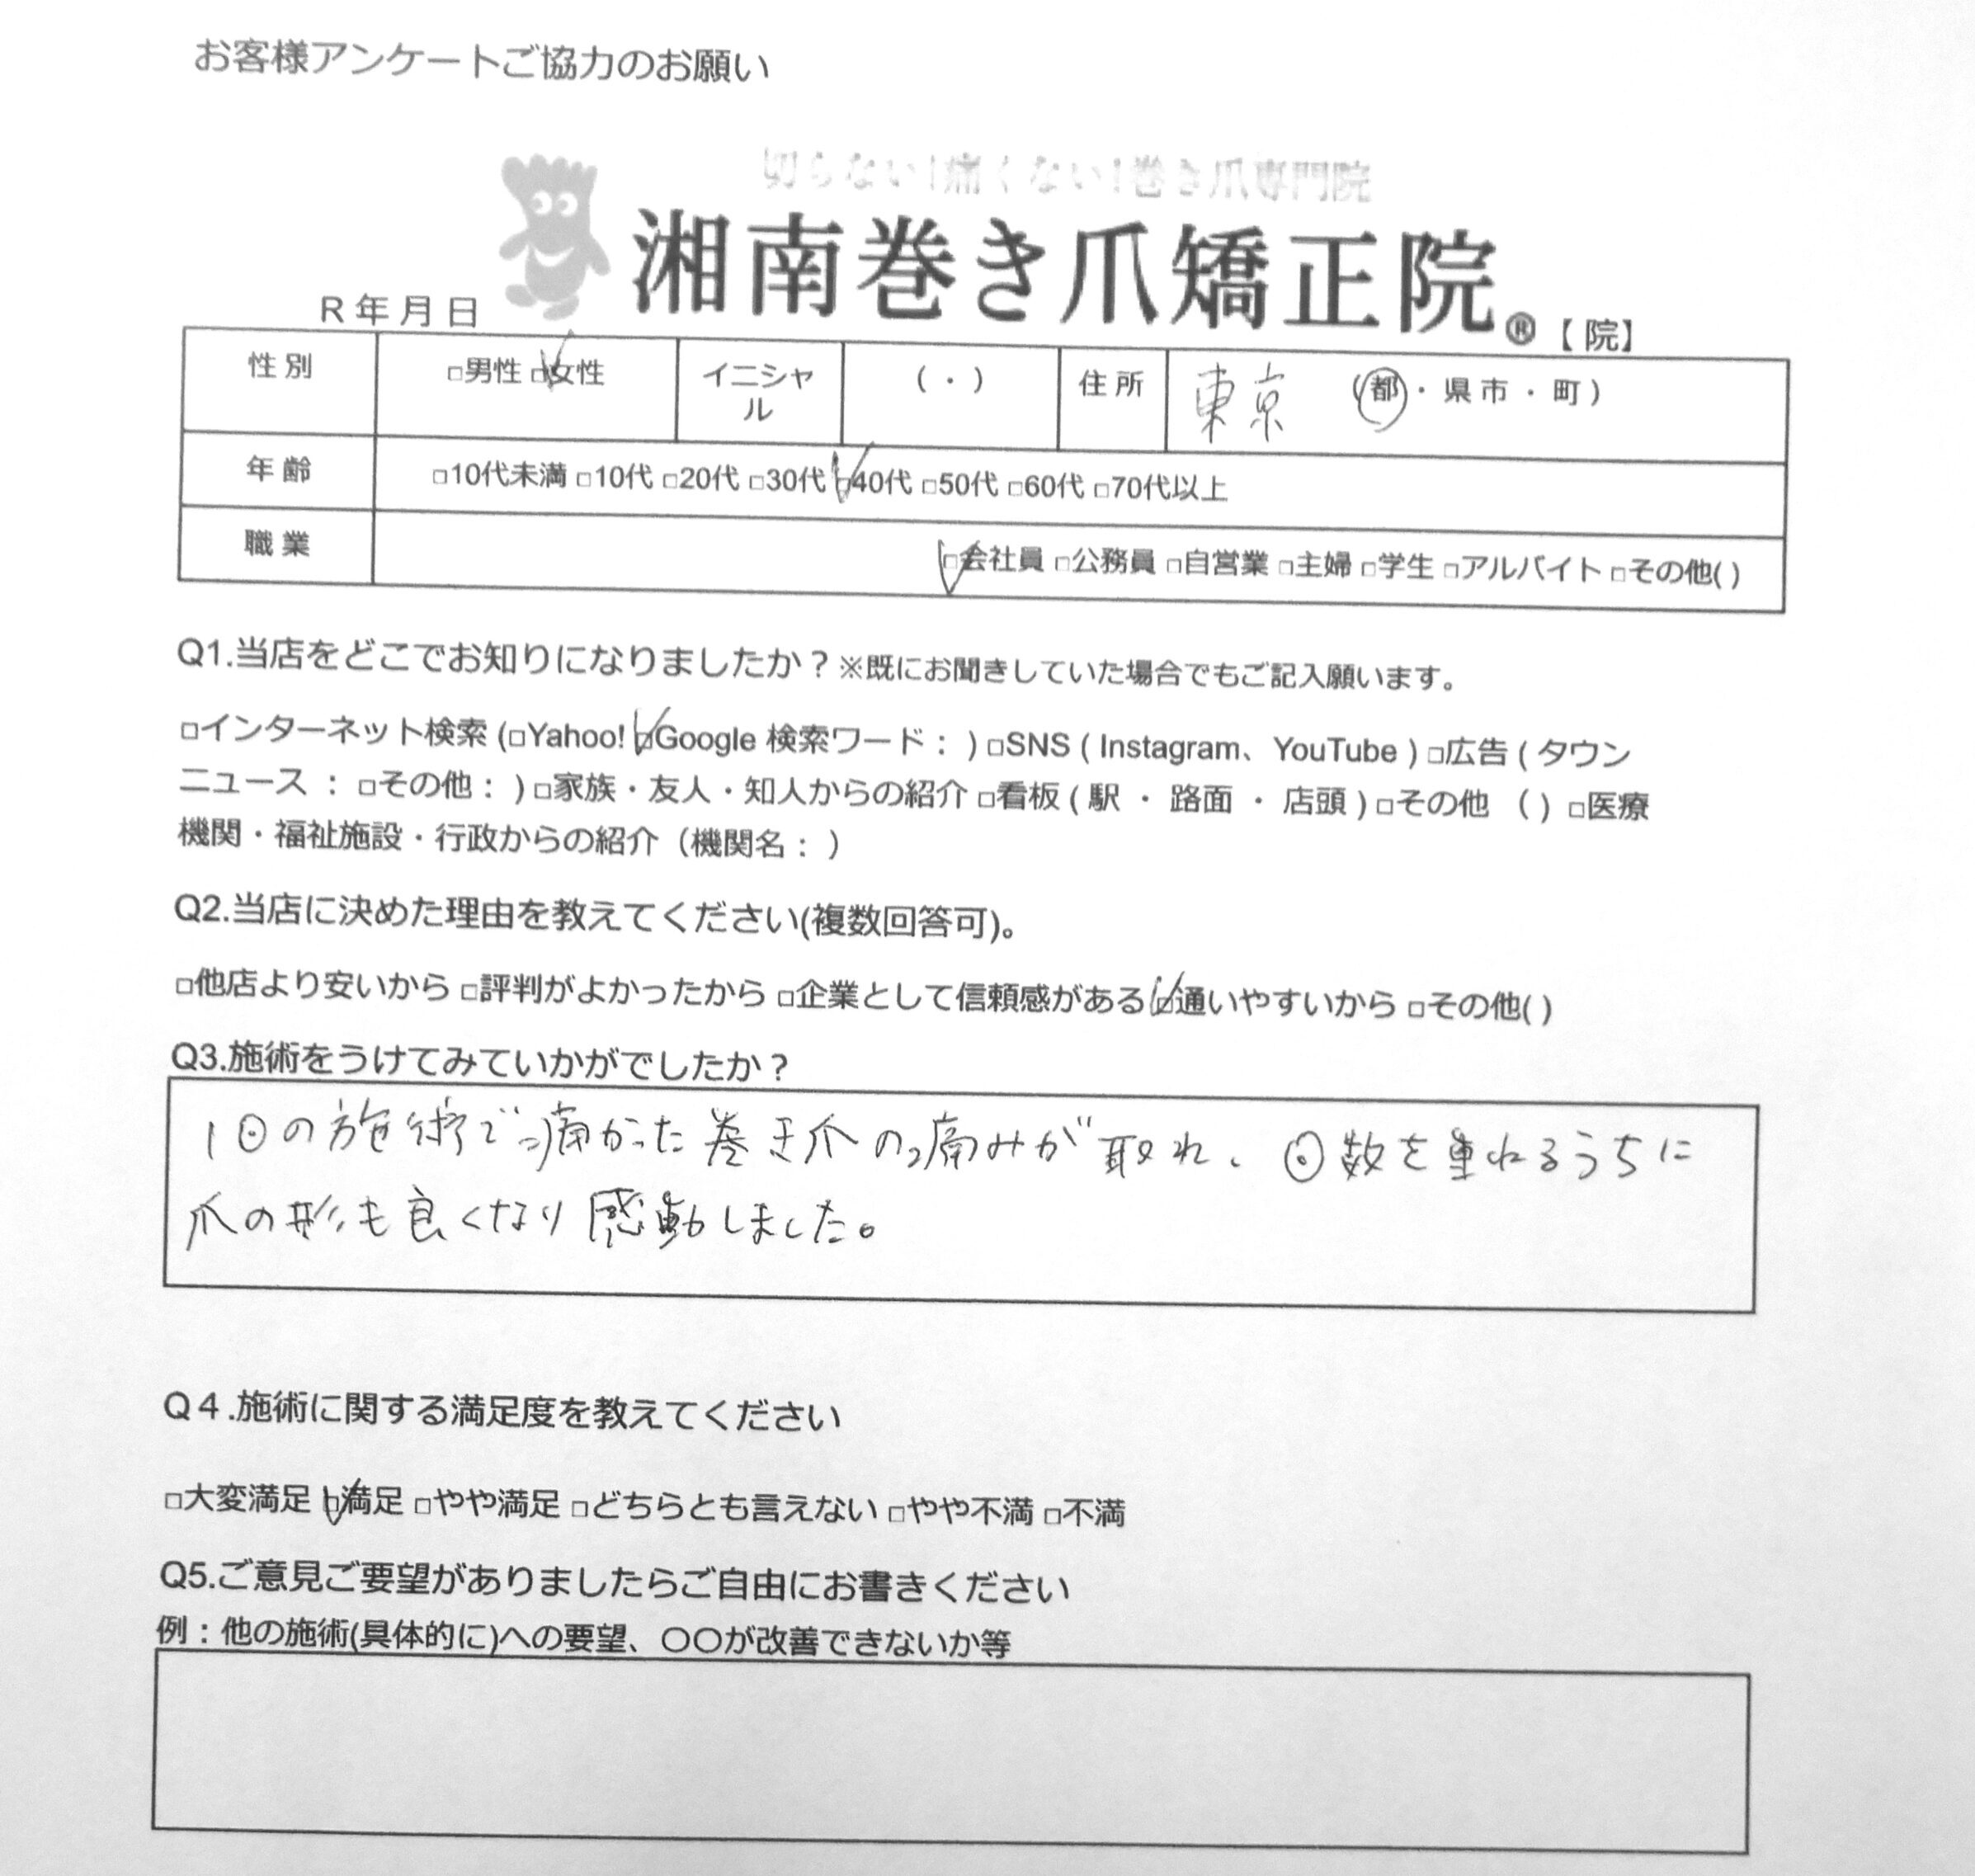 お客様アンケートご協力のお願い
切らない!痛くない!巻き爪専門院
湘南巻き爪矯正院®【 院】
R 年 月 日
性 別 □男性 □女性 イニシャル ( ・ ) 住 所 東京 (都・県 市・町 )
年 齢 □10代未満 □10代 □20代 □30代 □40代 □50代 □60代 □70代以上
職 業 □会社員 □公務員 □自営業 □主婦 □学生 □アルバイト □その他( )
Q1.当店をどこでお知りになりましたか？※既にお聞きしていた場合でもご記入願います。
□インターネット検索 (□Yahoo! □Google 検索ワード： ) □SNS ( Instagram、YouTube ) □広告 ( タウン
ニュース ： □その他： ) □家族・友人・知人からの紹介 □看板 ( 駅 ・ 路面 ・ 店頭 ) □その他 （ ）□医療
機関・福祉施設・行政からの紹介（機関名： ）
Q2.当店に決めた理由を教えてください(複数回答可)。
□他店より安いから □評判がよかったから □企業として信頼感がある □通いやすいから □その他( )
Q3.施術をうけてみていかがでしたか？
1回の施術で痛かった巻き爪の痛みが取れ、回数を重ねるうちに
爪の形も良くなり感動しました。
Q４.施術に関する満足度を教えてください
□大変満足 □満足 □やや満足 □どちらとも言えない □やや不満 □不満
Q5.ご意見ご要望がありましたらご自由にお書きください
例：他の施術(具体的に)への要望、〇〇が改善できないか等